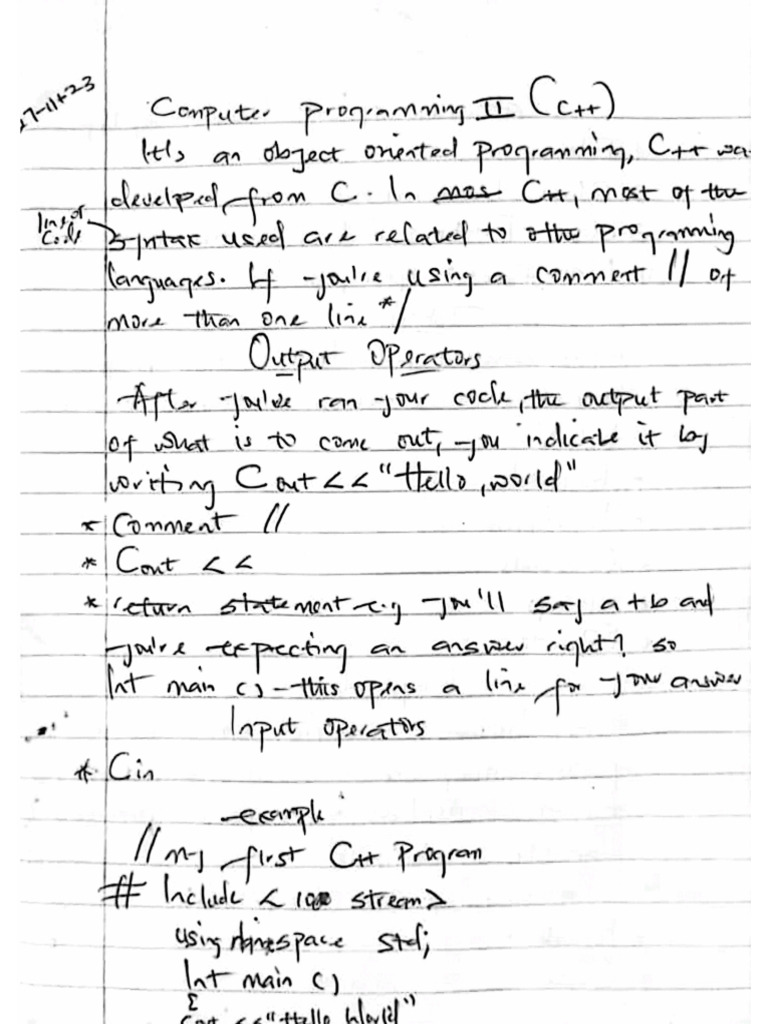 27-11+23
Computer Programming II (C++)
It's an object oriented programming, C++ wa
developed from C. In mos C++, most of the
lines of
Code
syntax used are related to othe programming
languages. If you're using a comment // of
more than one line */
Output Operators
After you've ran your code, the output part
of what is to come out, you indicate it by
writing Cout << "Hello, world"
* Comment //
* Cout <<
* return statement e.g you'll say a+b and
you're expecting an answer right? so
Int main () - this opens a line for your answer
Input operators
* Cin
example
// my first C++ Program
# Include < io stream>
using namespace std;
Int main ()
{
Cout << "Hello World"